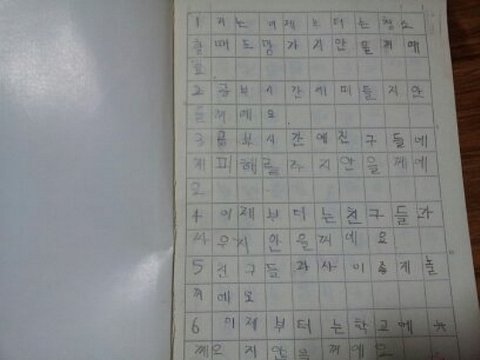 1 저는 이제부터는청소
할때도망가지안을께에
요
2 공부시간세미들지안
을께에요.
3 공부시간에친구들네
게피해를주지안을께에
요
4 이제부터는친구들과
싸우지안을께에요
5 친구들과사이좋게놀
께에요
6 이제부터는학교에늦
께오지안을께에요